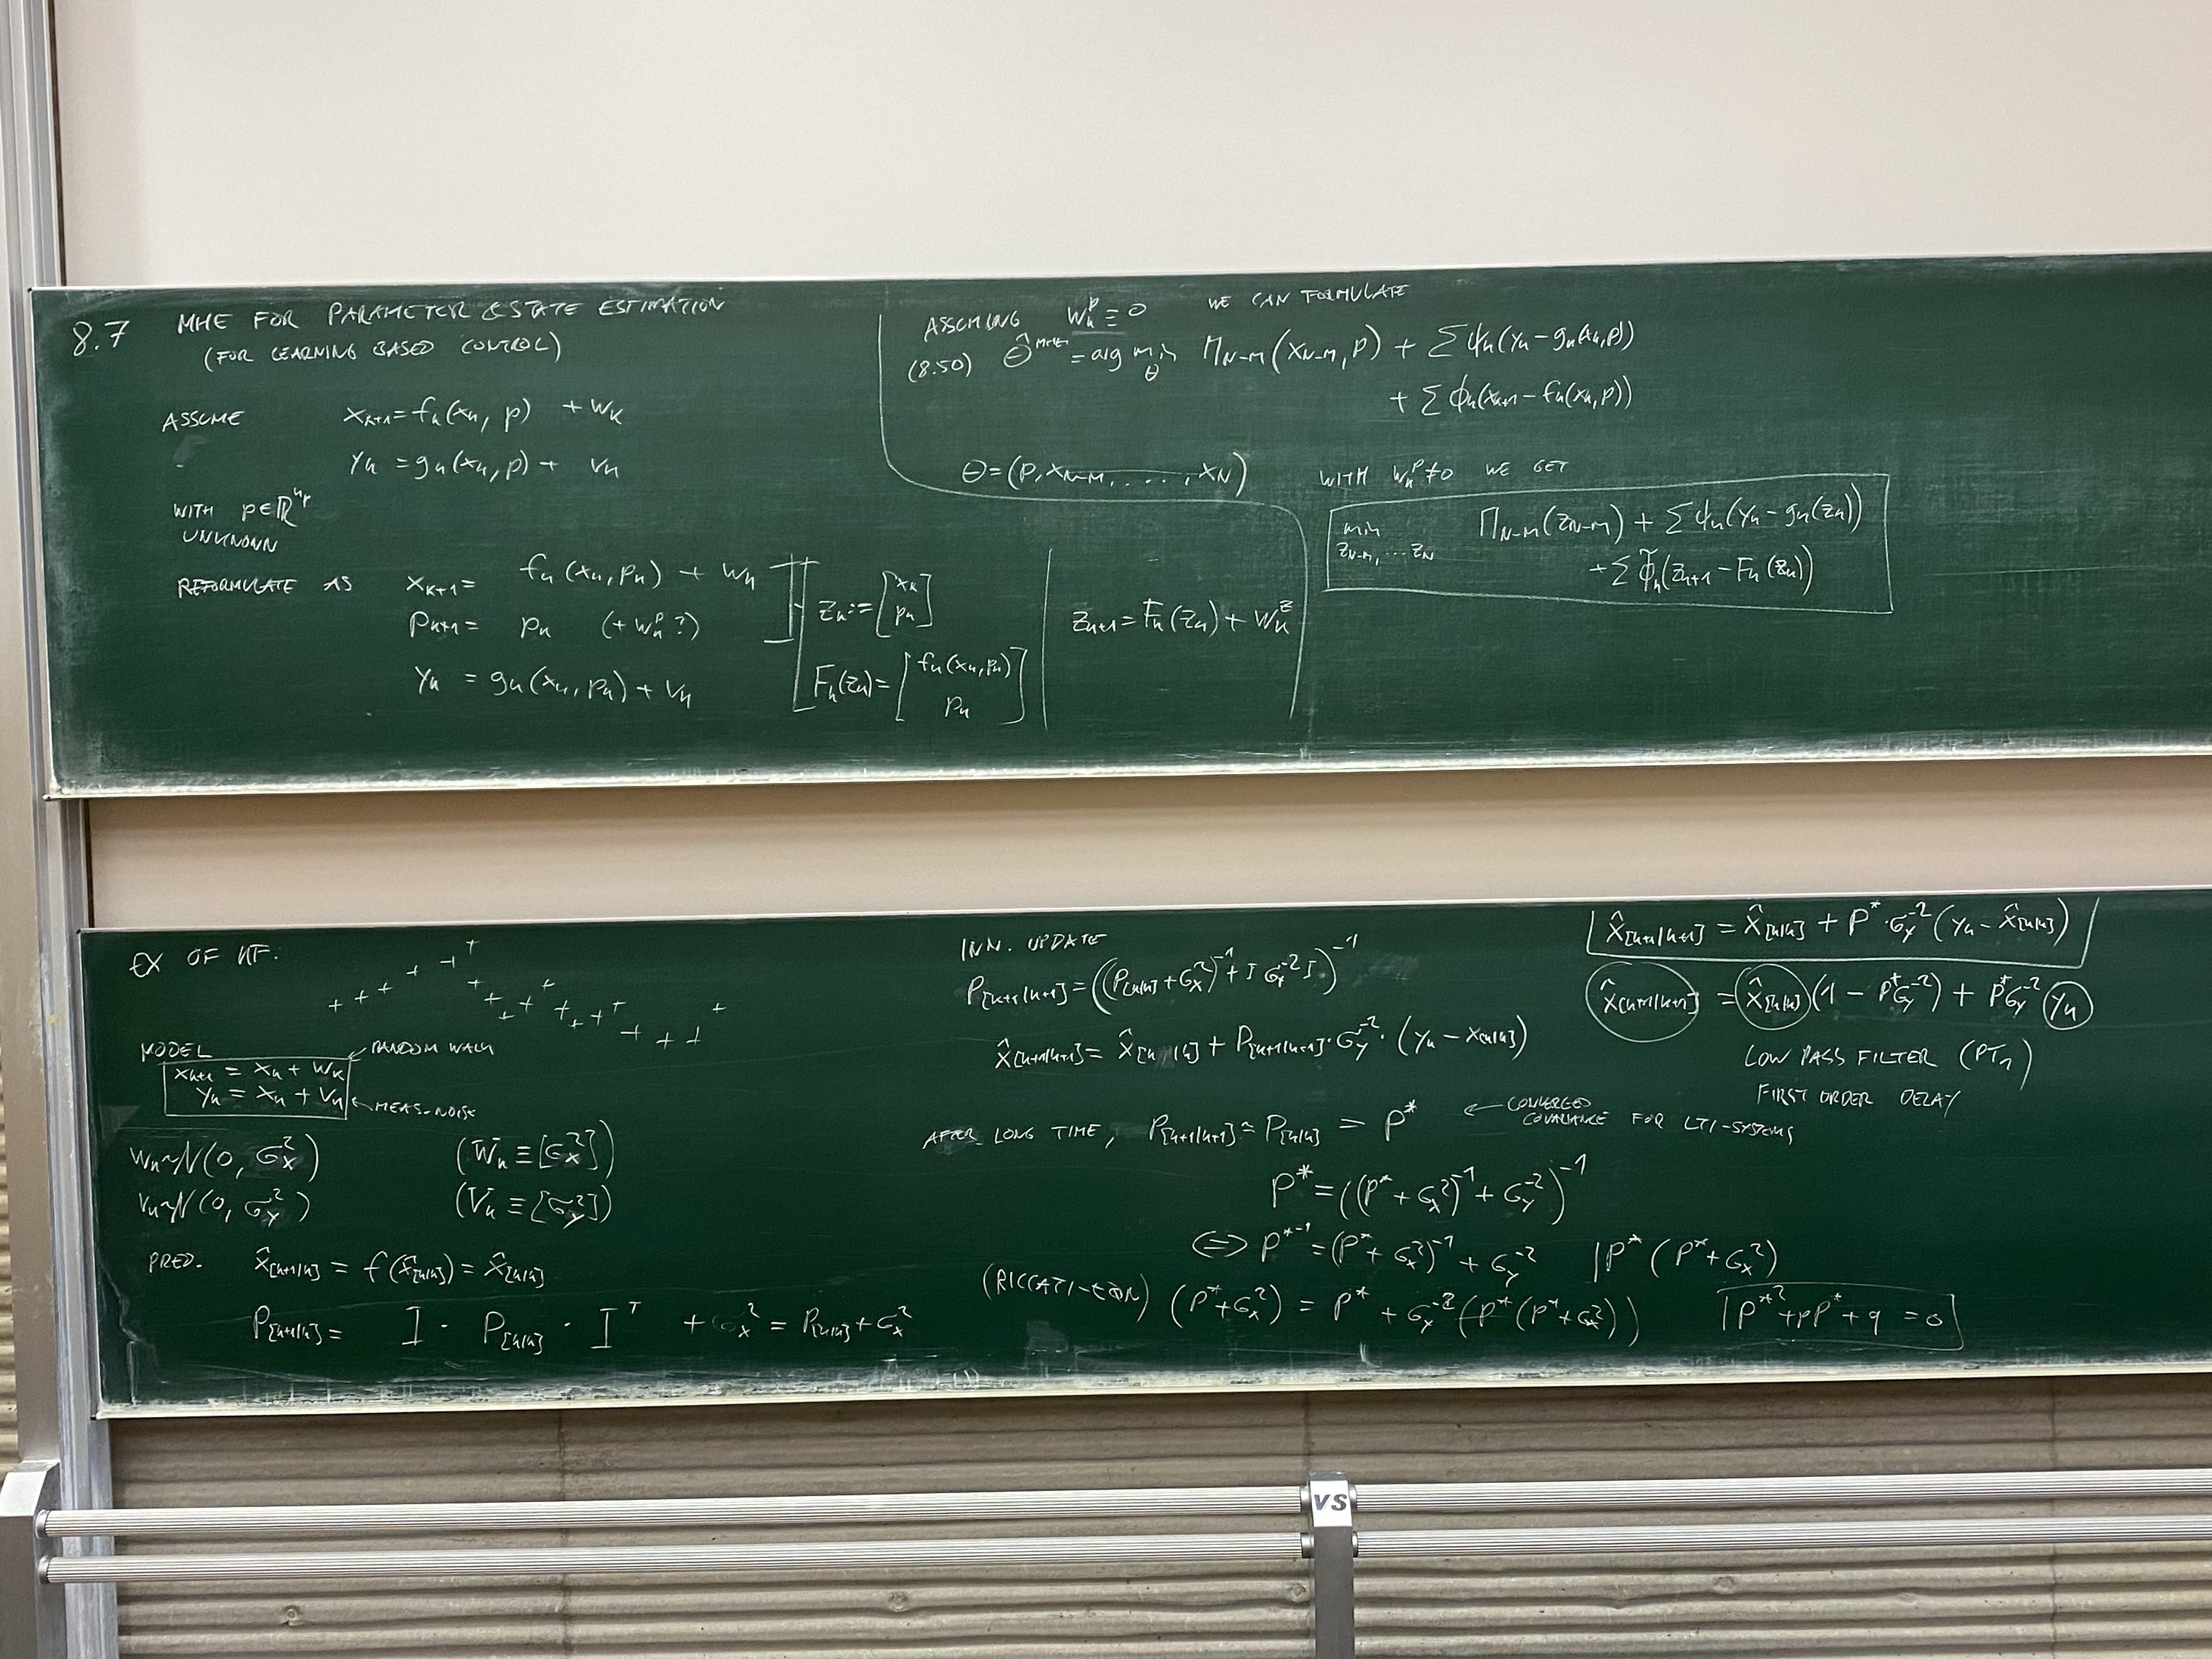 8.7 MHE FOR PARAMETER & STATE ESTIMATION
(FOR LEARNING BASED CONTROL)
ASSUME x_{k+1} = f_k(x_k, p) + w_k
y_k = g_k(x_k, p) + v_k
WITH p∈ℝ^{n_p}
UNKNOWN
REFORMULATE AS x_{k+1} = f_k(x_k, p_k) + w_k
p_{k+1} = p_k (+ w_k^p ?)
y_k = g_k(x_k, p_k) + v_k
z_k := [x_k p_k]
F_k(z_k) = [f_k(x_k, p_k) p_k]
z_{k+1} = F_k(z_k) + w_k^z
ASSUMING w_k^p ≡ 0 WE CAN FORMULATE
(8.50) θ̂^{MHE} = arg min_θ Π_{N-M}(x_{N-M}, p) + Σ ψ_k(y_k - g_k(x_k, p))
+ Σ ϕ_k(x_{k+1} - f_k(x_k, p))
θ = (p, x_{N-M}, . . . . , x_N)
WITH w_k^p ≠ 0 WE GET
min_{z_{N-M}, ... z_N} Π_{N-M}(z_{N-M}) + Σ ψ_k(y_k - g_k(z_k))
+ Σ ϕ̃_k(z_{k+1} - F_k(z_k))
EX OF KF:
MODEL ← RANDOM WALK
x_{k+1} = x_k + w_k
y_k = x_k + v_k ← MEAS-NOISE
w_k ~ N(0, σ_x^2) (W_k ≡ [σ_x^2])
v_k ~ N(0, σ_y^2) (V_k ≡ [σ_y^2])
PRED. x̂_{[k+1|k]} = f(x̂_{[k|k]}) = x̂_{[k|k]}
P_{[k+1|k]} = I · P_{[k|k]} · I^T + σ_x^2 = P_{[k|k]} + σ_x^2
INN. UPDATE
P_{[k+1|k+1]} = ((P_{[k|k]} + σ_x^2)^{-1} + I σ_y^{-2} I)^{-1}
x̂_{[k+1|k+1]} = x̂_{[k|k]} + P_{[k+1|k+1]} · σ_y^{-2} · (y_k - x_{[k|k]})
AFTER LONG TIME, P_{[k+1|k+1]} ≈ P_{[k|k]} = P* ← CONVERGED
COVARIANCE FOR LTI-SYSTEMS
P* = ((P* + σ_x^2)^{-1} + σ_y^{-2})^{-1}
⇔ P*^{-1} = (P* + σ_x^2)^{-1} + σ_y^{-2} | P* (P* + σ_x^2)
(RICCATI-EQN) (P* + σ_x^2) = P* + σ_y^{-2} (P* (P* + σ_x^2))
P*^2 + pP* + q = 0
x̂_{[k+1|k+1]} = x̂_{[k|k]} + P* · σ_y^{-2} (y_k - x̂_{[k|k]})
x̂_{[k+1|k+1]} = x̂_{[k|k]} (1 - P*σ_y^{-2}) + P*σ_y^{-2} y_k
LOW PASS FILTER (PT1)
FIRST ORDER DELAY
VS